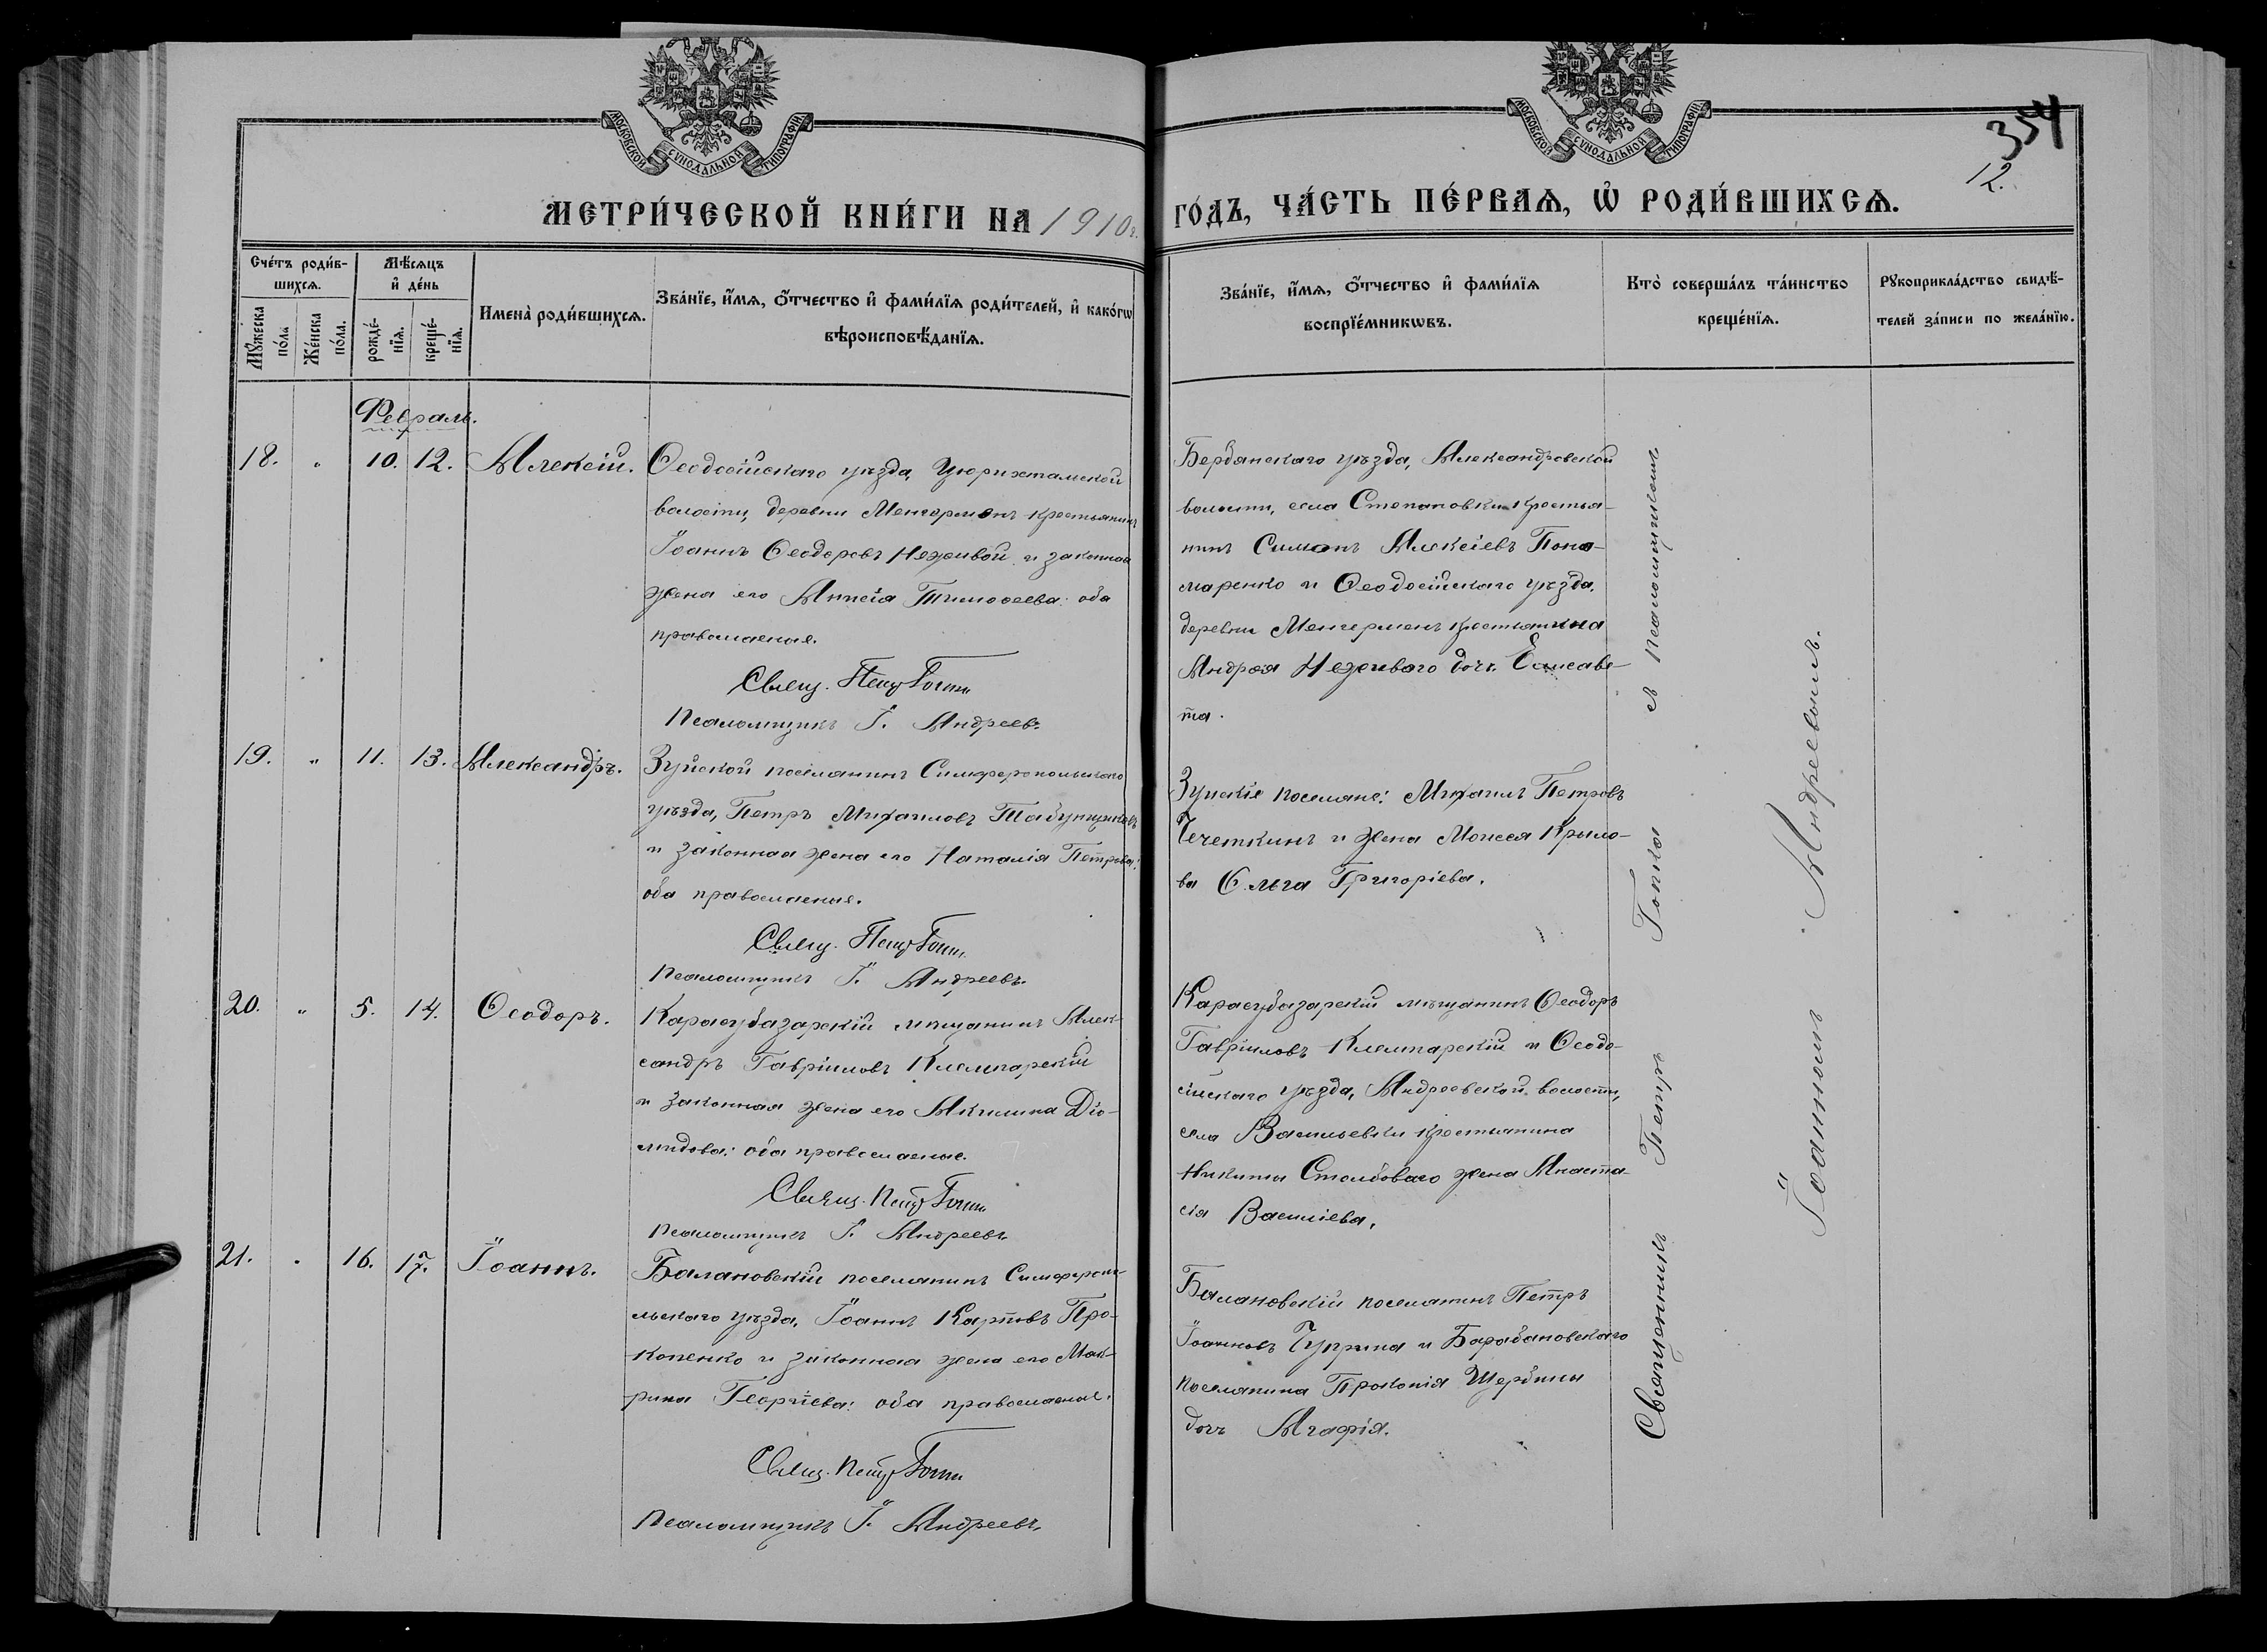 МОСКОВСКОЙ СУНОДАЛЬНОЙ ТИПОГРАФІИ
МОСКОВСКОЙ СУНОДАЛЬНОЙ ТИПОГРАФІИ
354
12.
МЕТРИ́ЧЕСКОЙ КНИ́ГИ НА 1910 г.
ГО́ДЪ, ЧА́СТЬ ПЕ́РВАѦ, Ѡ҆ РОДИ́ВШИХСѦ.
Сче́тъ роди́в-
шихсѧ.
Мꙋ́жеска по́ла
Же́нска по́ла.
Мѣ́сѧцъ
и҆ де́нь
рожде́-
нїѧ.
креще́-
нїѧ.
Имена̀ роди́вшихсѧ.
Зва́нїе, и҆́мѧ, ѻ҆́тчество и҆ фами́лїѧ роди́телей, и҆ како́гѡ
вѣроисповѣ́данїѧ.
Зва́нїе, и҆́мѧ, ѻ҆́тчество и҆ фами́лїѧ
воспрїе́мникѡвъ.
Кто̀ соверша́лъ та́инство
креще́нїѧ.
Рꙋкоприкла́дство свидѣ́-
телей за́писи по жела́нїю.
Февраль.
18. " 10. 12. Алексій.
Ѳеодосійскаго уѣзда, Цюрихтальской
волости, деревни Менгерменъ крестьянинъ
Іоаннъ Ѳеодоровъ Неживой и законная
жена его Анисія Тимоѳеева: оба
православные.
Свящ. Петр Гопка
Псаломщикъ І. Андреевъ.
Бердянскаго уѣзда, Александровской
волости, села Степановки крестья-
нинъ Симонъ Алексіевъ Поно-
маренко и Ѳеодосійскаго уѣзда,
деревни Менгерменъ крестьянина
Андрея Неживого дочь Елисаве-
та.
19. " 11. 13. Александръ.
Зуйской поселянинъ Симферопольскаго
уѣзда, Петръ Михаиловъ Табунщиковъ
и законная жена его Наталія Петрова:
оба православные.
Свящ. Петр Гопка
Псаломщикъ І. Андреевъ.
Зуйскіе поселяне: Михаилъ Петровъ
Чечеткинъ и жена Моисея Крыло-
ва Ольга Григоріева.
20. " 5. 14. Ѳеодоръ.
Карасубазарскій мѣщанинъ Алек-
сандръ Гавріиловъ Клемпарскій
и законная жена его Акилина Діо-
мидова: оба православные.
Свящ. Петр Гопка
Псаломщикъ І. Андреевъ
Карасубазарскій мѣщанинъ Ѳеодоръ
Гавріиловъ Клемпарскій и Ѳеодо-
сійскаго уѣзда, Андреевской волости,
села Васильевки крестьянина
Никиты Столбоваго жена Анаста-
сія Василіева.
21. " 16. 17. Іоаннъ.
Балановскій поселянинъ Симферопо-
льскаго уѣзда, Іоаннъ Карповъ Про-
копенко и законная жена его Мак-
рина Георгіева: оба православные.
Свящ. Петр Гопка
Псаломщикъ І. Андреевъ.
Балановскій поселянинъ Петръ
Іоанновъ Чуприна и Барабановскаго
поселянина Прокопія Щербины
дочь Агафія.
Священникъ Петръ Гопка съ псаломщикомъ
Іоанномъ Андреевымъ.